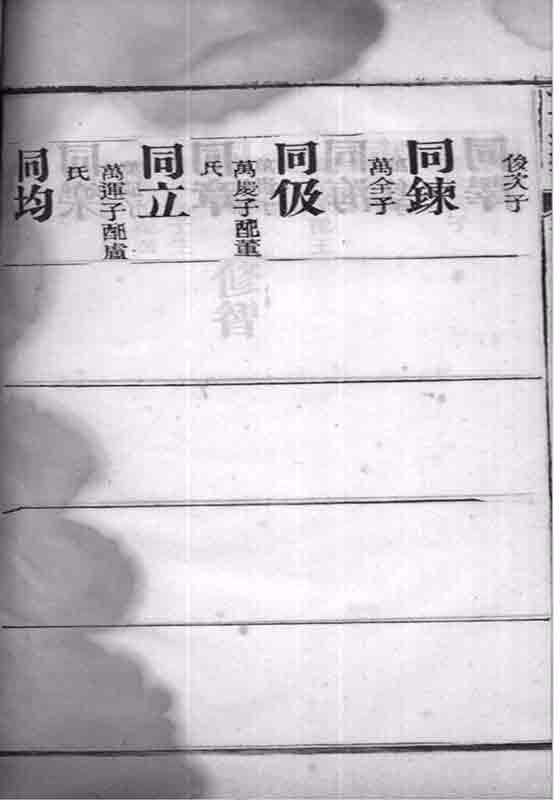 俊次子
同鍊
萬全子
同伋
萬慶子配董
氏
同立
萬運子配盧
氏
同均